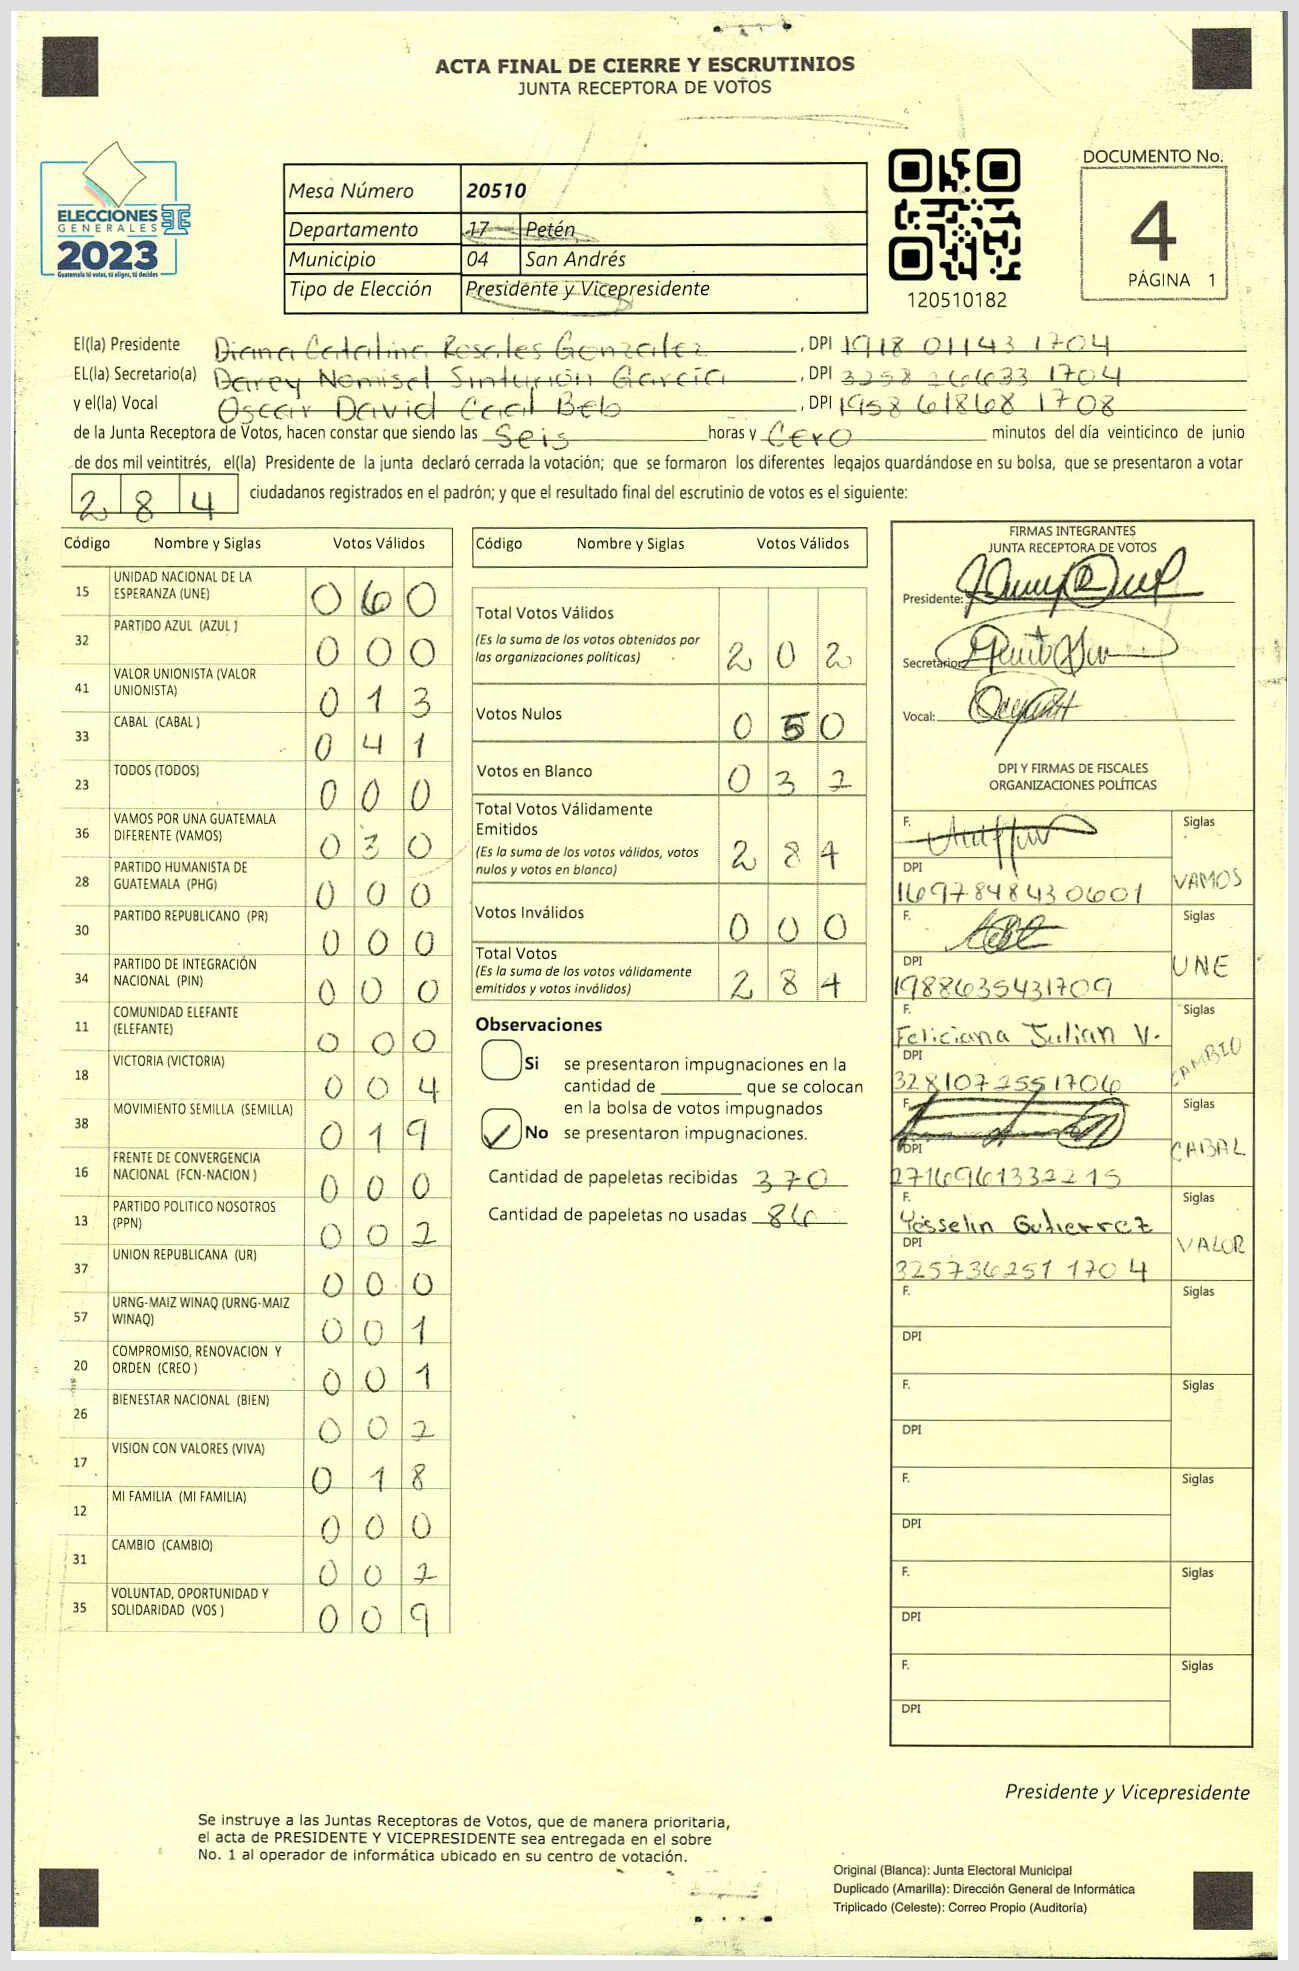 ACTA FINAL DE CIERRE Y ESCRUTINIOS
JUNTA RECEPTORA DE VOTOS
ELECCIONES
GENERALES
2023
Guatemala tú votas, tú eliges, tú decides
Mesa Número 20510
Departamento 17 Petén
Municipio 04 San Andrés
Tipo de Elección Presidente y Vicepresidente
120510182
DOCUMENTO No.
4
PÁGINA 1
El(la) Presidente Diana Catalina Rosales Gonzalez, DPI 1918 01143 1704
EL(la) Secretario(a) Darey Nomisel Sinturión García, DPI 3258 26633 1704
y el(la) Vocal Oscar David Caal Beb, DPI 1958 61868 1708
de la Junta Receptora de Votos, hacen constar que siendo las Seis horas y Cero minutos del día veinticinco de junio
de dos mil veintitrés, el(la) Presidente de la junta declaró cerrada la votación; que se formaron los diferentes legajos guardándose en su bolsa, que se presentaron a votar
284 ciudadanos registrados en el padrón; y que el resultado final del escrutinio de votos es el siguiente:
Código Nombre y Siglas Votos Válidos
15 UNIDAD NACIONAL DE LA ESPERANZA (UNE) 060
32 PARTIDO AZUL (AZUL ) 000
41 VALOR UNIONISTA (VALOR UNIONISTA) 013
33 CABAL (CABAL ) 041
23 TODOS (TODOS) 000
36 VAMOS POR UNA GUATEMALA DIFERENTE (VAMOS) 030
28 PARTIDO HUMANISTA DE GUATEMALA (PHG) 000
30 PARTIDO REPUBLICANO (PR) 000
34 PARTIDO DE INTEGRACIÓN NACIONAL (PIN) 000
11 COMUNIDAD ELEFANTE (ELEFANTE) 000
18 VICTORIA (VICTORIA) 004
38 MOVIMIENTO SEMILLA (SEMILLA) 019
16 FRENTE DE CONVERGENCIA NACIONAL (FCN-NACION ) 000
13 PARTIDO POLITICO NOSOTROS (PPN) 002
37 UNION REPUBLICANA (UR) 000
57 URNG-MAIZ WINAQ (URNG-MAIZ WINAQ) 001
20 COMPROMISO, RENOVACION Y ORDEN (CREO ) 001
26 BIENESTAR NACIONAL (BIEN) 002
17 VISION CON VALORES (VIVA) 018
12 MI FAMILIA (MI FAMILIA) 000
31 CAMBIO (CAMBIO) 002
35 VOLUNTAD, OPORTUNIDAD Y SOLIDARIDAD (VOS ) 009
Código Nombre y Siglas Votos Válidos
Total Votos Válidos
(Es la suma de los votos obtenidos por
las organizaciones políticas) 202
Votos Nulos 050
Votos en Blanco 032
Total Votos Válidamente
Emitidos
(Es la suma de los votos válidos, votos
nulos y votos en blanco) 284
Votos Inválidos 000
Total Votos
(Es la suma de los votos válidamente
emitidos y votos inválidos) 284
Observaciones
Si se presentaron impugnaciones en la
cantidad de ________ que se colocan
en la bolsa de votos impugnados
No se presentaron impugnaciones.
Cantidad de papeletas recibidas 370
Cantidad de papeletas no usadas 86
FIRMAS INTEGRANTES
JUNTA RECEPTORA DE VOTOS
Presidente:
Secretario:
Vocal:
DPI Y FIRMAS DE FISCALES
ORGANIZACIONES POLÍTICAS
F. Siglas
DPI VAMOS
1697848430601
F. Siglas
DPI UNE
1988635431709
F. Siglas
Feliciana Julian V.
DPI CAMBIO
3281072551706
F. Siglas
DPI CABAL
2716961332215
F. Siglas
Yesselin Gutierrez
DPI VALOR
325736251 1704
F. Siglas
DPI
F. Siglas
DPI
F. Siglas
DPI
F. Siglas
DPI
F. Siglas
DPI
Presidente y Vicepresidente
Se instruye a las Juntas Receptoras de Votos, que de manera prioritaria,
el acta de PRESIDENTE Y VICEPRESIDENTE sea entregada en el sobre
No. 1 al operador de informática ubicado en su centro de votación.
Original (Blanca): Junta Electoral Municipal
Duplicado (Amarilla): Dirección General de Informática
Triplicado (Celeste): Correo Propio (Auditoría)